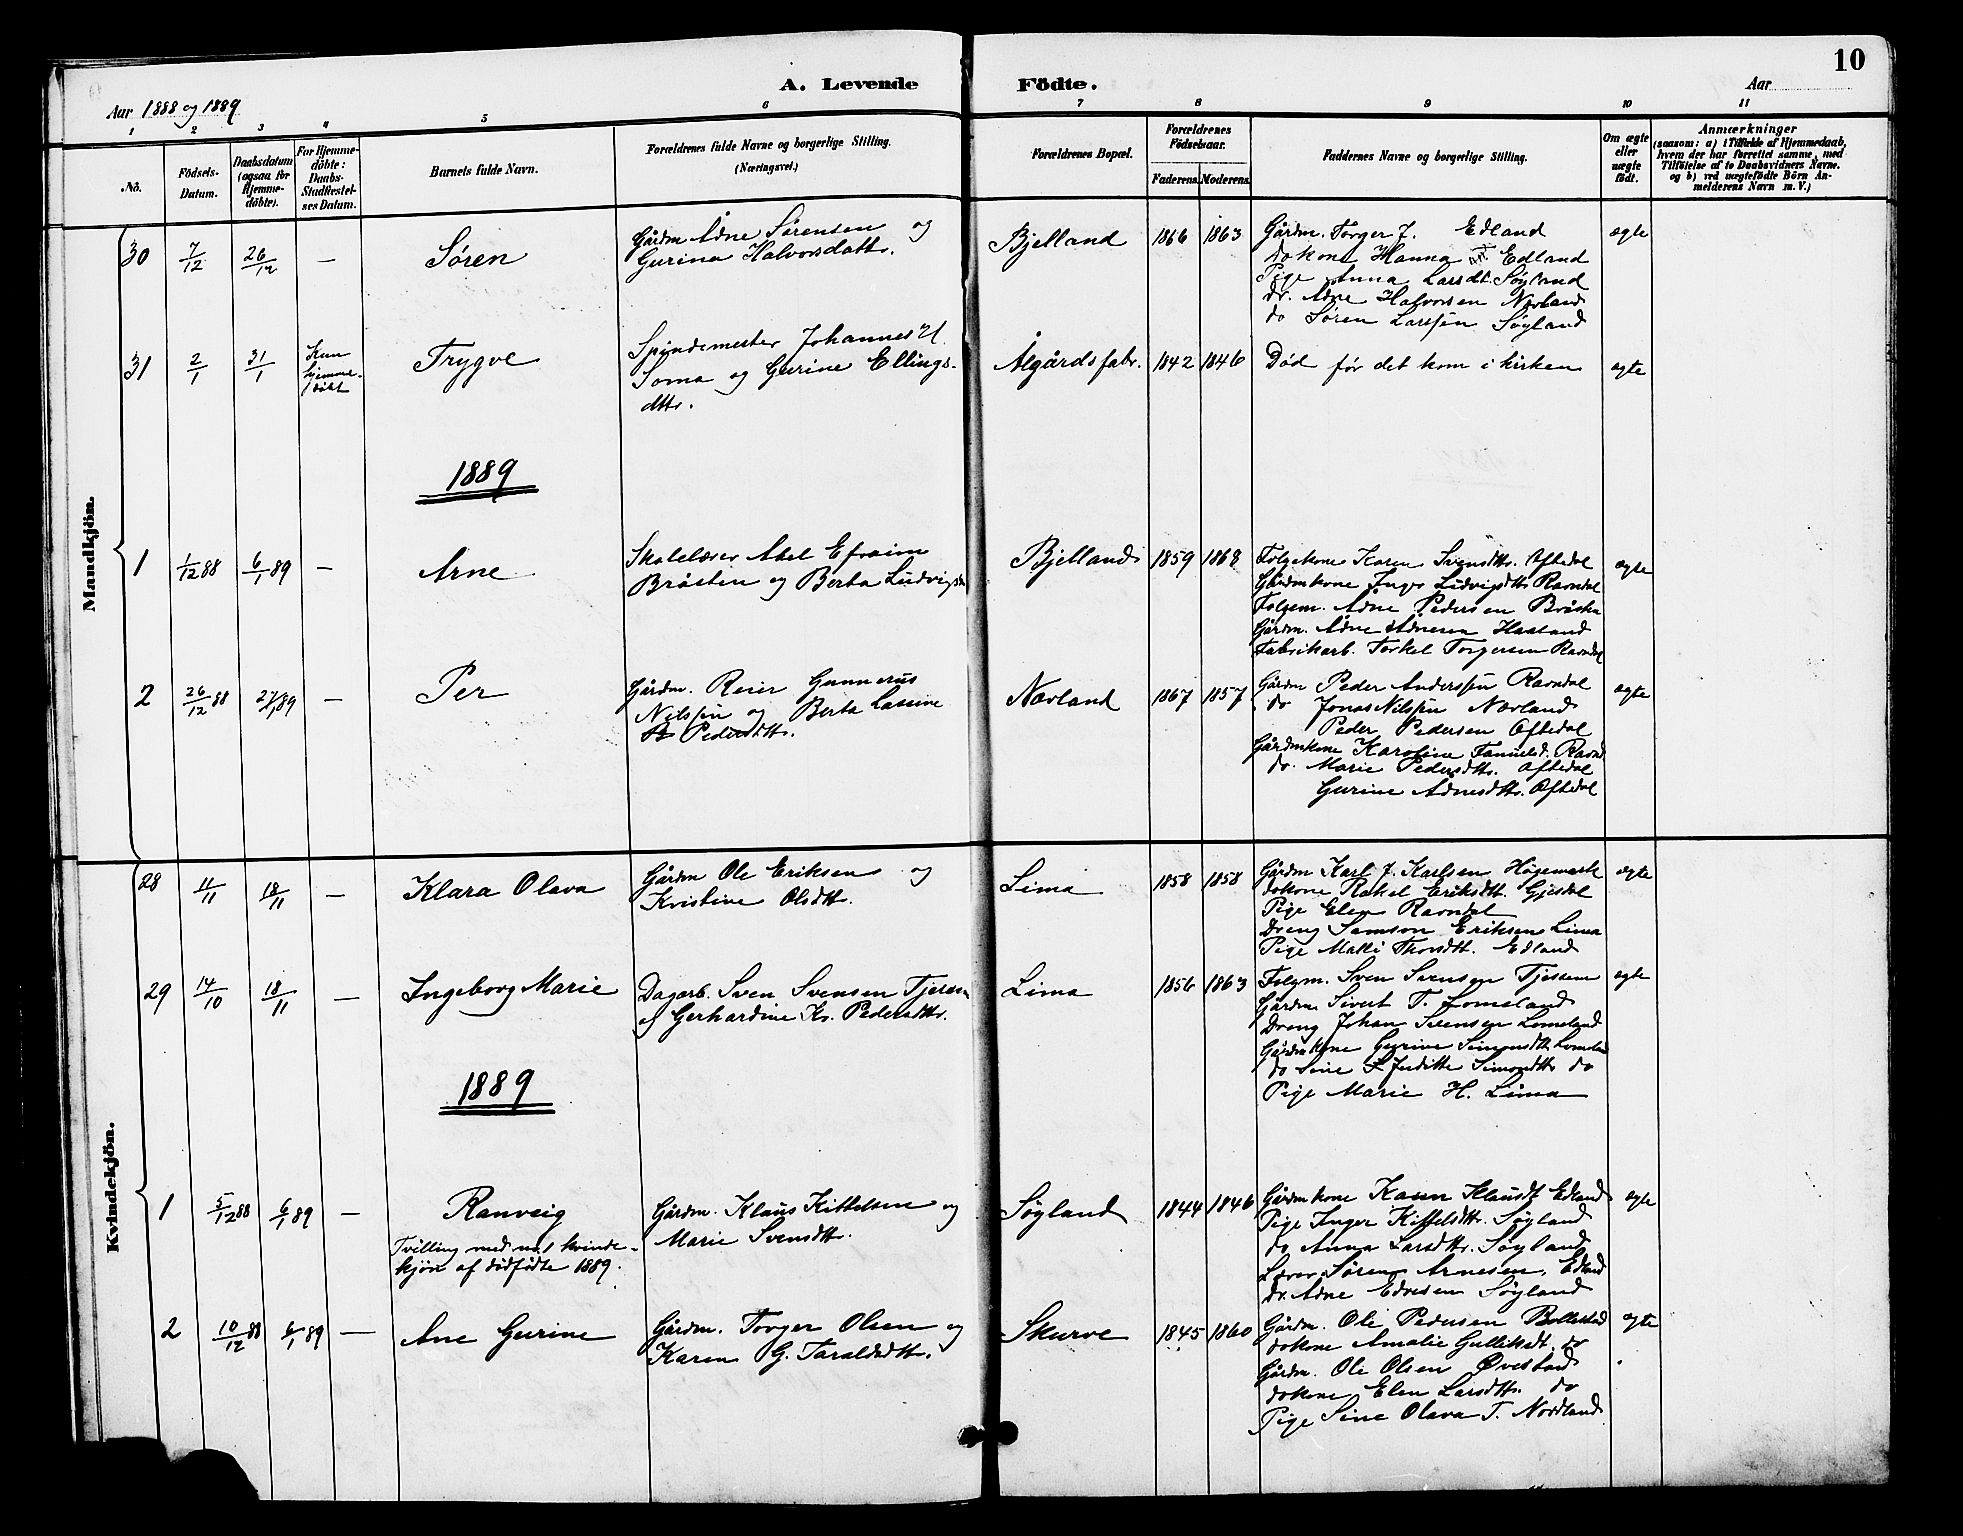 10
A. Levende Födte.
Aar 1888 og 1889
Aar
1 2 3 4 5 6 7 8 9 10 11
No.
Födsels-Datum.
Daabsdatum (ogsaa for Hjemme-döbte).
For Hjemme-döbte: Daabs-Stadfæstel-ses Datum.
Barnets fulde Navn.
Forældrenes fulde Navne og borgerlige Stilling.
(Næringsvei.)
Forældrenes Bopæl.
Forældrenes Födselsaar.
Faderens. Moderens.
Faddernes Navne og borgerlige Stilling.
Om ægte eller uægte födt.
Anmærkninger
(saasom: a) i Tilfælde af Hjemmedaab, hvem der har forrettet samme, med Tilföielse af to Daabsvidners Navne. og b) ved uægtefödte Börn An-melderens Navn m. V.)
Mandkjön.
30 7/12 26/12 — Søren
Gårdm Ådne Sørensen og
Gurina Halvorsdattr.
Bjelland 1866 1863
Gårdm. Torger J. Edland
do kone Hanna Edland
Pige Anna Larsdt. Søyland
dr. Adne Halvorsen Nærland
do Søren Larssen Søyland
ægte
31 2/1 31/1 Kun hjemme-døbt Trygve
Spindemester Johannes
Soma og Gurine Ellings-
dttr.
Ålgårdsfabr. 1842 1846
Død før det kom i kirken
ægte
1889
1 1/12 88 6/1 89 — Arne
Skolelærer Abel Efraim
Bråsten og Berta Ludvigsd
Bjelland 1859 1868
Folgekone Karen Svensdttr. Oftedal
Gårdmkone Inger Ludvigsdttr Ravndal
Folgem. Ådne Pedersen Bråsten
Gårdm. Ådne Ådnesen Haaland
Fabrikarb. Torkel Torgersen Ravndal
ægte
2 26/12 88 27/1 89 — Per
Gårdm. Reier Gunnerus
Nilssen og Berta Lassine
Pedersdttr.
Nærland 1867 1857
Gårdm Peder Anderssen Ravndal
do Jonas Nilssen Nærland
Peder Pedersen Oftedal
Gårdmkone Karoline Ravnd
do. Marie Pedersdttr. Oftedal
Gurine Ådnesdttr. Oftedal
ægte
Kvindekjön.
28 11/11 18/11 — Klara Olava
Gårdm Ole Eriksen og
Kristine Olsdttr.
Lima 1858 1858
Gårdm Karl J. Karlsen Høgemork
do kone Rakel Eriksdtt. Gjesdal
Pige Elen Ravndal
Dreng Samson Eriksen Lima
Pige Malli Thorsdtt. Edland
ægte
29 14/10 18/11 — Ingeborg Marie
Dagarb. Sven Svensen Tjessem
og Gerhardine Kr. Pedersdttr.
Lima 1856 1863
Folgm. Sven Svensen Tjessem
Gårdm Sivert T. Lomeland
Dreng Johan Svensen Lomeland
Gårdmkone Gurine Simonsdtt. Lomelan
do Sine Juditte Simonsdttr do
Pige Marie H. Lima
ægte
1889
1 5/12 88 6/1 89 — Ranveig
Tvilling med no. 1 kvinde-
kjøn af dødfødte 1889.
Gårdm. Klaus Kittelsen og
Marie Svensdttr.
Søyland 1844 1846
Gårdmkone Karen Klausdt Edland
Pige Inger Kittelsdttr. Søyland
do Anna Larsdttr. Søyland
Lærer Søren Arnesen Edland
dr. Adne Edvesen Søyland
ægte
2 10/12 88 6/1 89 — Ane Gurine
Gårdm. Torger Olsen og
Karen G. Taraldsdttr.
Skurve 1845 1860
Gårdm. Ole Pedersen Bollestad
do kone Amalie Gulliksdt. do
Gårdm. Ole Olsen Øvestad
do kone Elen Larsdttr. do
Pige Sine Olava T. Nordland
ægte